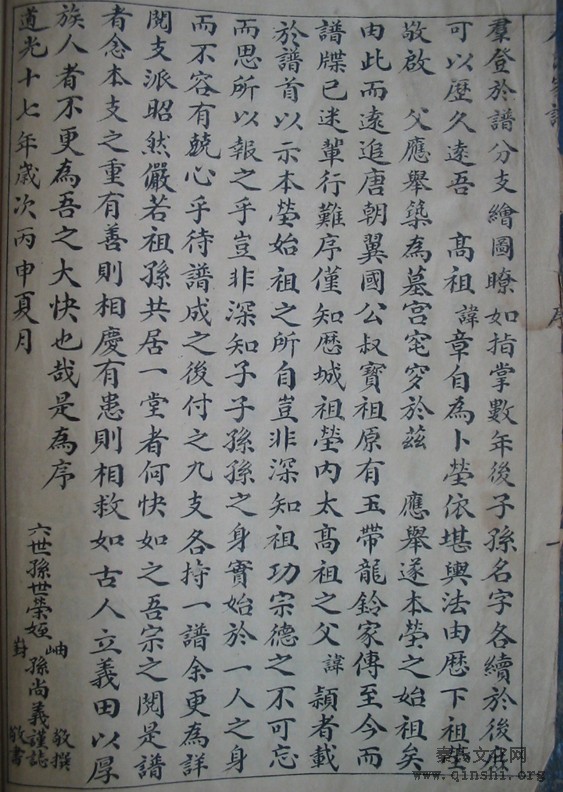 羣登於譜分支繪圖瞭如指掌數年後子孫名字各續於後庶
可以歷久遠吾 髙祖諱章自為卜塋依堪輿法由歷下祖塋
敬啟 父應舉築為墓宫窀穸於茲 應舉遂本塋之始祖矣
由此而遠追唐朝翼國公叔寶祖原有玉帶龍鈴家傳至今而
譜牒已迷輩行難序僅知歷城祖塋内太髙祖之父諱頴者載
於譜首以示本塋始祖之所自豈非深知祖功宗德之不可忘
而思所以報之乎豈非深知子子孫孫之身實始於一人之身
而不容有兢心乎待譜成之後付之九支各持一譜余更為詳
閱支派昭然儼若祖孫共居一堂者何快如之吾宗之閱是譜
者念本支之重有善則相慶有患則相救如古人立義田以厚
族人者不更為吾之大快也哉是為序
道光十七年歲次丙申夏月
六世孫世榮姪岫敬撰
孫尚義謹誌
對敬書
秦氏文化网
www.qinshi.org